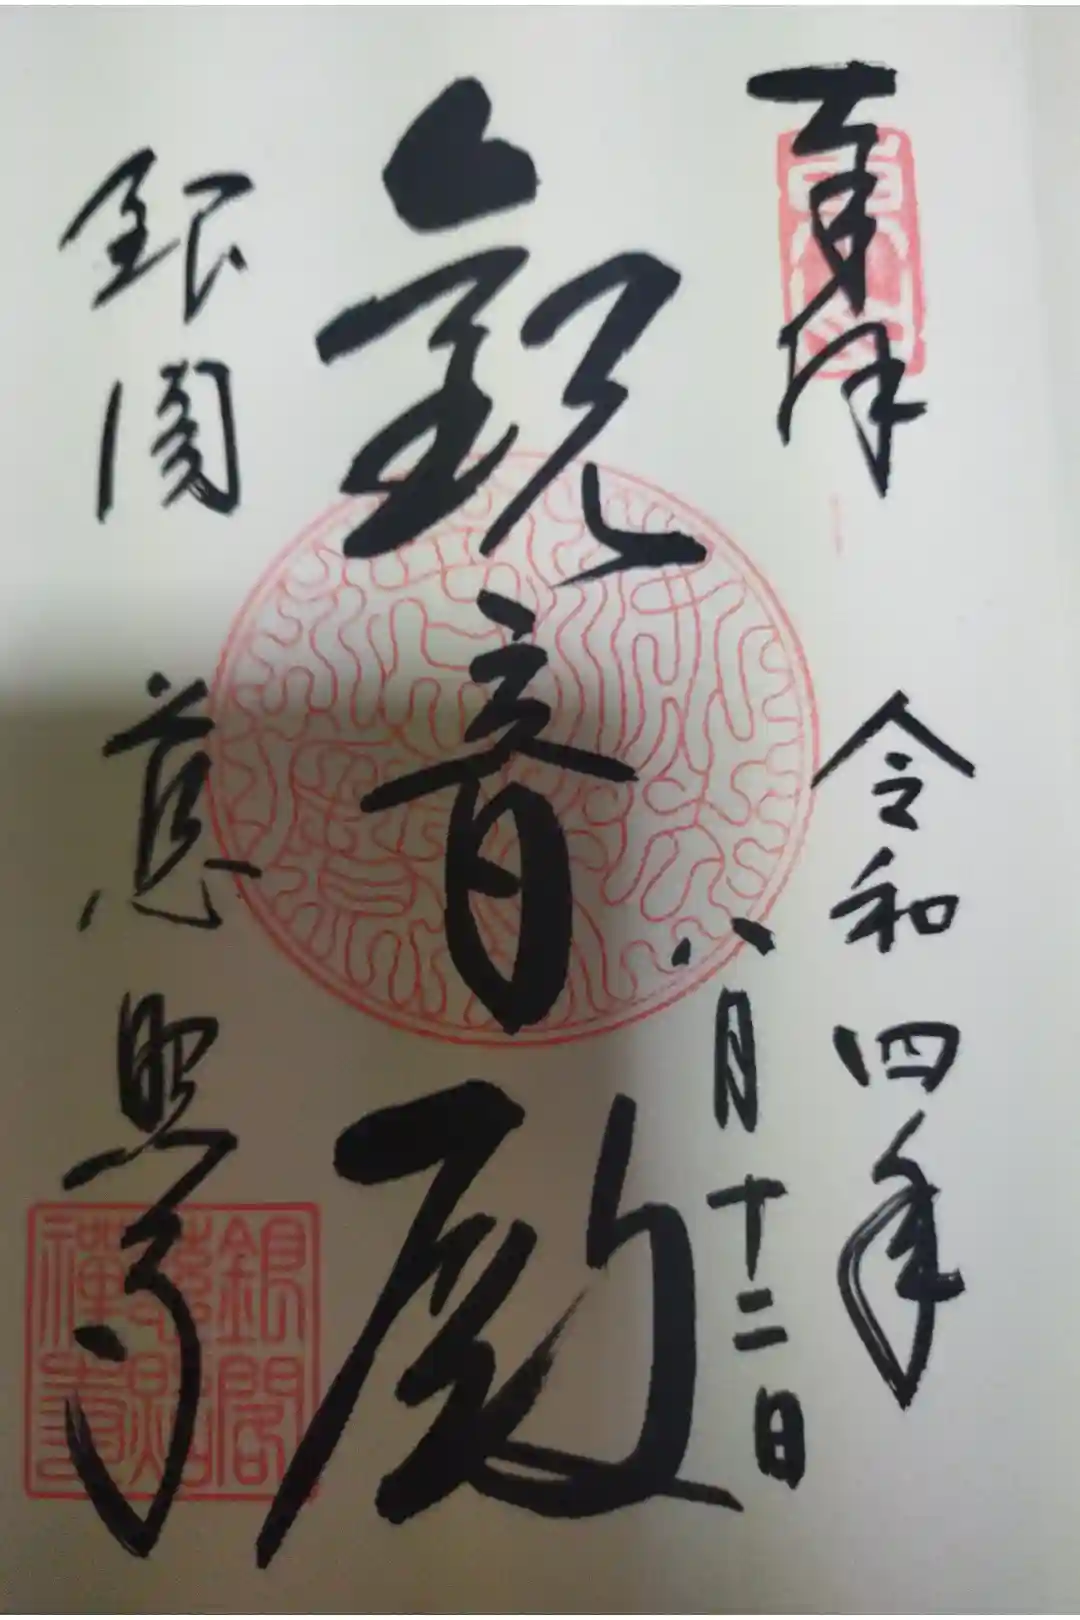 奉拝
令和四年
八月十二日
観音殿
銀閣
慈照寺
銀閣
慈照
禅寺